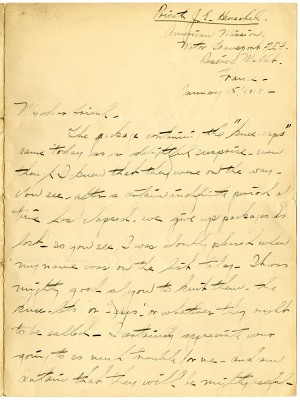 Private J. E. Henschel
American Mission
Motor Transport 253
Reserve Mallet
France -
January 15 1918 -
My dear friend -
The package containing the "knee-caps"
came today as a delightful surprise - even
though I knew that they were on the way -
You see - after a certain indefinite period of
time has elapsed - we give up packages as
lost - so you see I was doubly pleased when
my name was on the list today - It was
mighty good of you to knit them - the
knee- or - "caps" - or whatever they ought
to be called - I certainly appreciate your
going to so much trouble for me - and am
certain that they will be mighty useful -